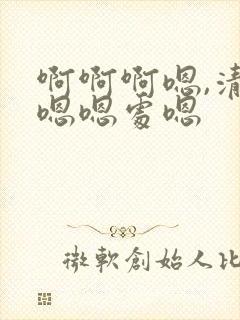 啊啊啊嗯,清
嗯嗯处嗯
微軟創始人比